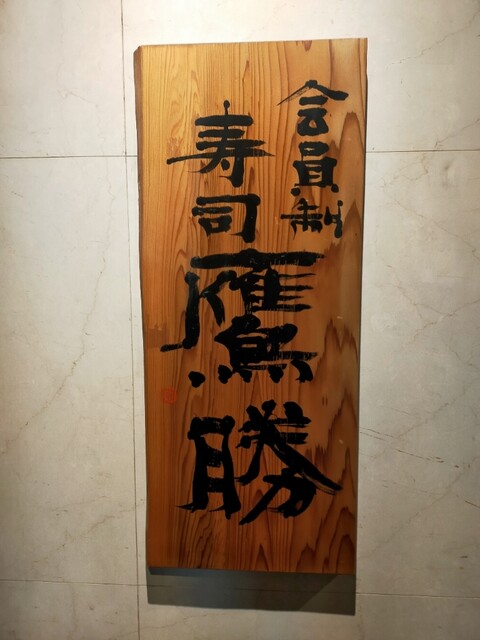 会員制
寿司鷹勝